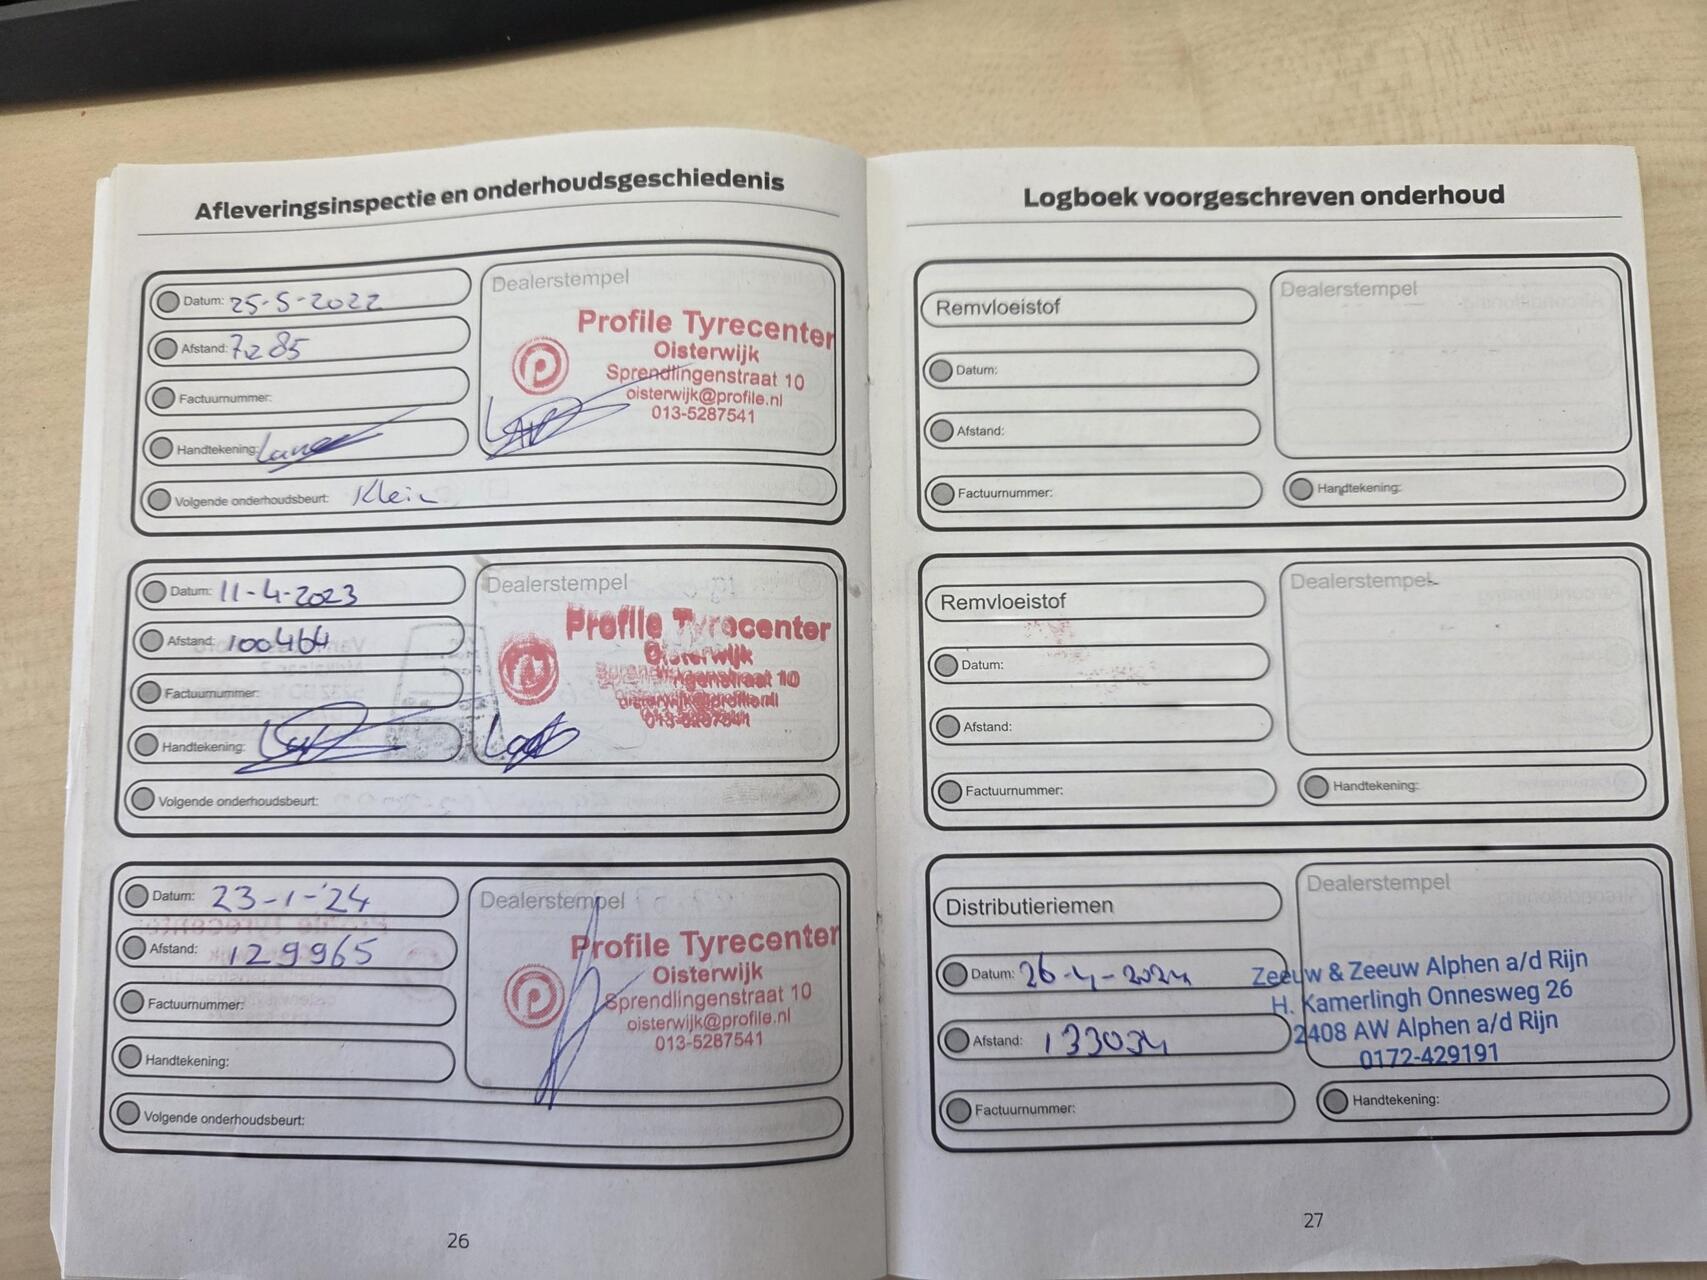 Afleveringsinspectie en onderhoudsgeschiedenis
Datum: 25-5-2022
Afstand: 7285
Factuurnummer:
Handtekening:
Volgende onderhoudsbeurt: Klein
Dealerstempel
Profile Tyrecenter
Oisterwijk
Sprendlingenstraat 10
oisterwijk@profile.nl
013-5287541
Datum: 11-4-2023
Afstand: 100464
Factuurnummer:
Handtekening:
Volgende onderhoudsbeurt:
Dealerstempel
Profile Tyrecenter
Oisterwijk
Sprendlingenstraat 10
oisterwijk@profile.nl
013-5287541
Datum: 23-1-'24
Afstand: 129965
Factuurnummer:
Handtekening:
Volgende onderhoudsbeurt:
Dealerstempel
Profile Tyrecenter
Oisterwijk
Sprendlingenstraat 10
oisterwijk@profile.nl
013-5287541
26
Logboek voorgeschreven onderhoud
Remvloeistof
Datum:
Afstand:
Factuurnummer:
Dealerstempel
Handtekening:
Remvloeistof
Datum:
Afstand:
Factuurnummer:
Dealerstempel
Handtekening:
Distributieriemen
Datum: 26-4-2024
Afstand: 133034
Factuurnummer:
Dealerstempel
Zeeuw & Zeeuw Alphen a/d Rijn
H. Kamerlingh Onnesweg 26
2408 AW Alphen a/d Rijn
0172-429191
Handtekening:
27